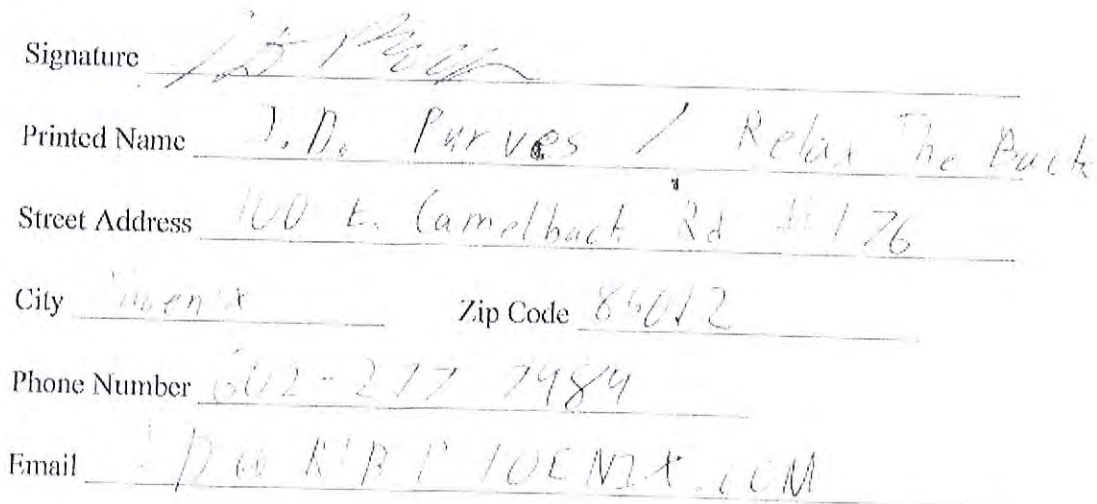 Signature
Printed Name J.D. Purves / Relax The Back
Street Address 100 E. Camelback Rd #176
City Phoenix Zip Code 85012
Phone Number 602-277 7484
Email